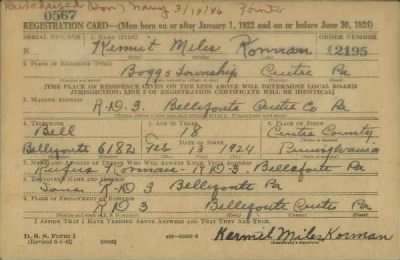 Discharged (Hon) Navy 3/10/46
0567
REGISTRATION CARD—(Men born on or after January 1, 1922 and on or before June 30, 1924)
SERIAL NUMBER 1. NAME (Print) ORDER NUMBER
N Kermit Miles Korman 12195
2. PLACE OF RESIDENCE (Print)
Boggs Township Centre Pa
(THE PLACE OF RESIDENCE GIVEN ON THE LINE ABOVE WILL DETERMINE LOCAL BOARD
JURISDICTION; LINE 2 OF REGISTRATION CERTIFICATE WILL BE IDENTICAL)
3. MAILING ADDRESS
R.D.3. Bellefonte Centre Co Pa
4. TELEPHONE 5. AGE IN YEARS
Bell 18 Centre County
Bellefonte 6182 DATE OF BIRTH Feb 13 1924 Pennsylvania
7. NAME AND ADDRESS OF PERSON WHO WILL ALWAYS KNOW YOUR ADDRESS
Rufus Korman - R.D.3. Bellefonte Pa
8. EMPLOYER'S NAME AND ADDRESS
Same R.D 3 Bellefonte Pa
9. PLACE OF EMPLOYMENT OR BUSINESS
R.D 3 Bellefonte Centre Pa
I AFFIRM THAT I HAVE VERIFIED ABOVE ANSWERS AND THAT THEY ARE TRUE.
D. S. S. Form 1
(Revised 6-1-42) (over) Kermit Miles Korman